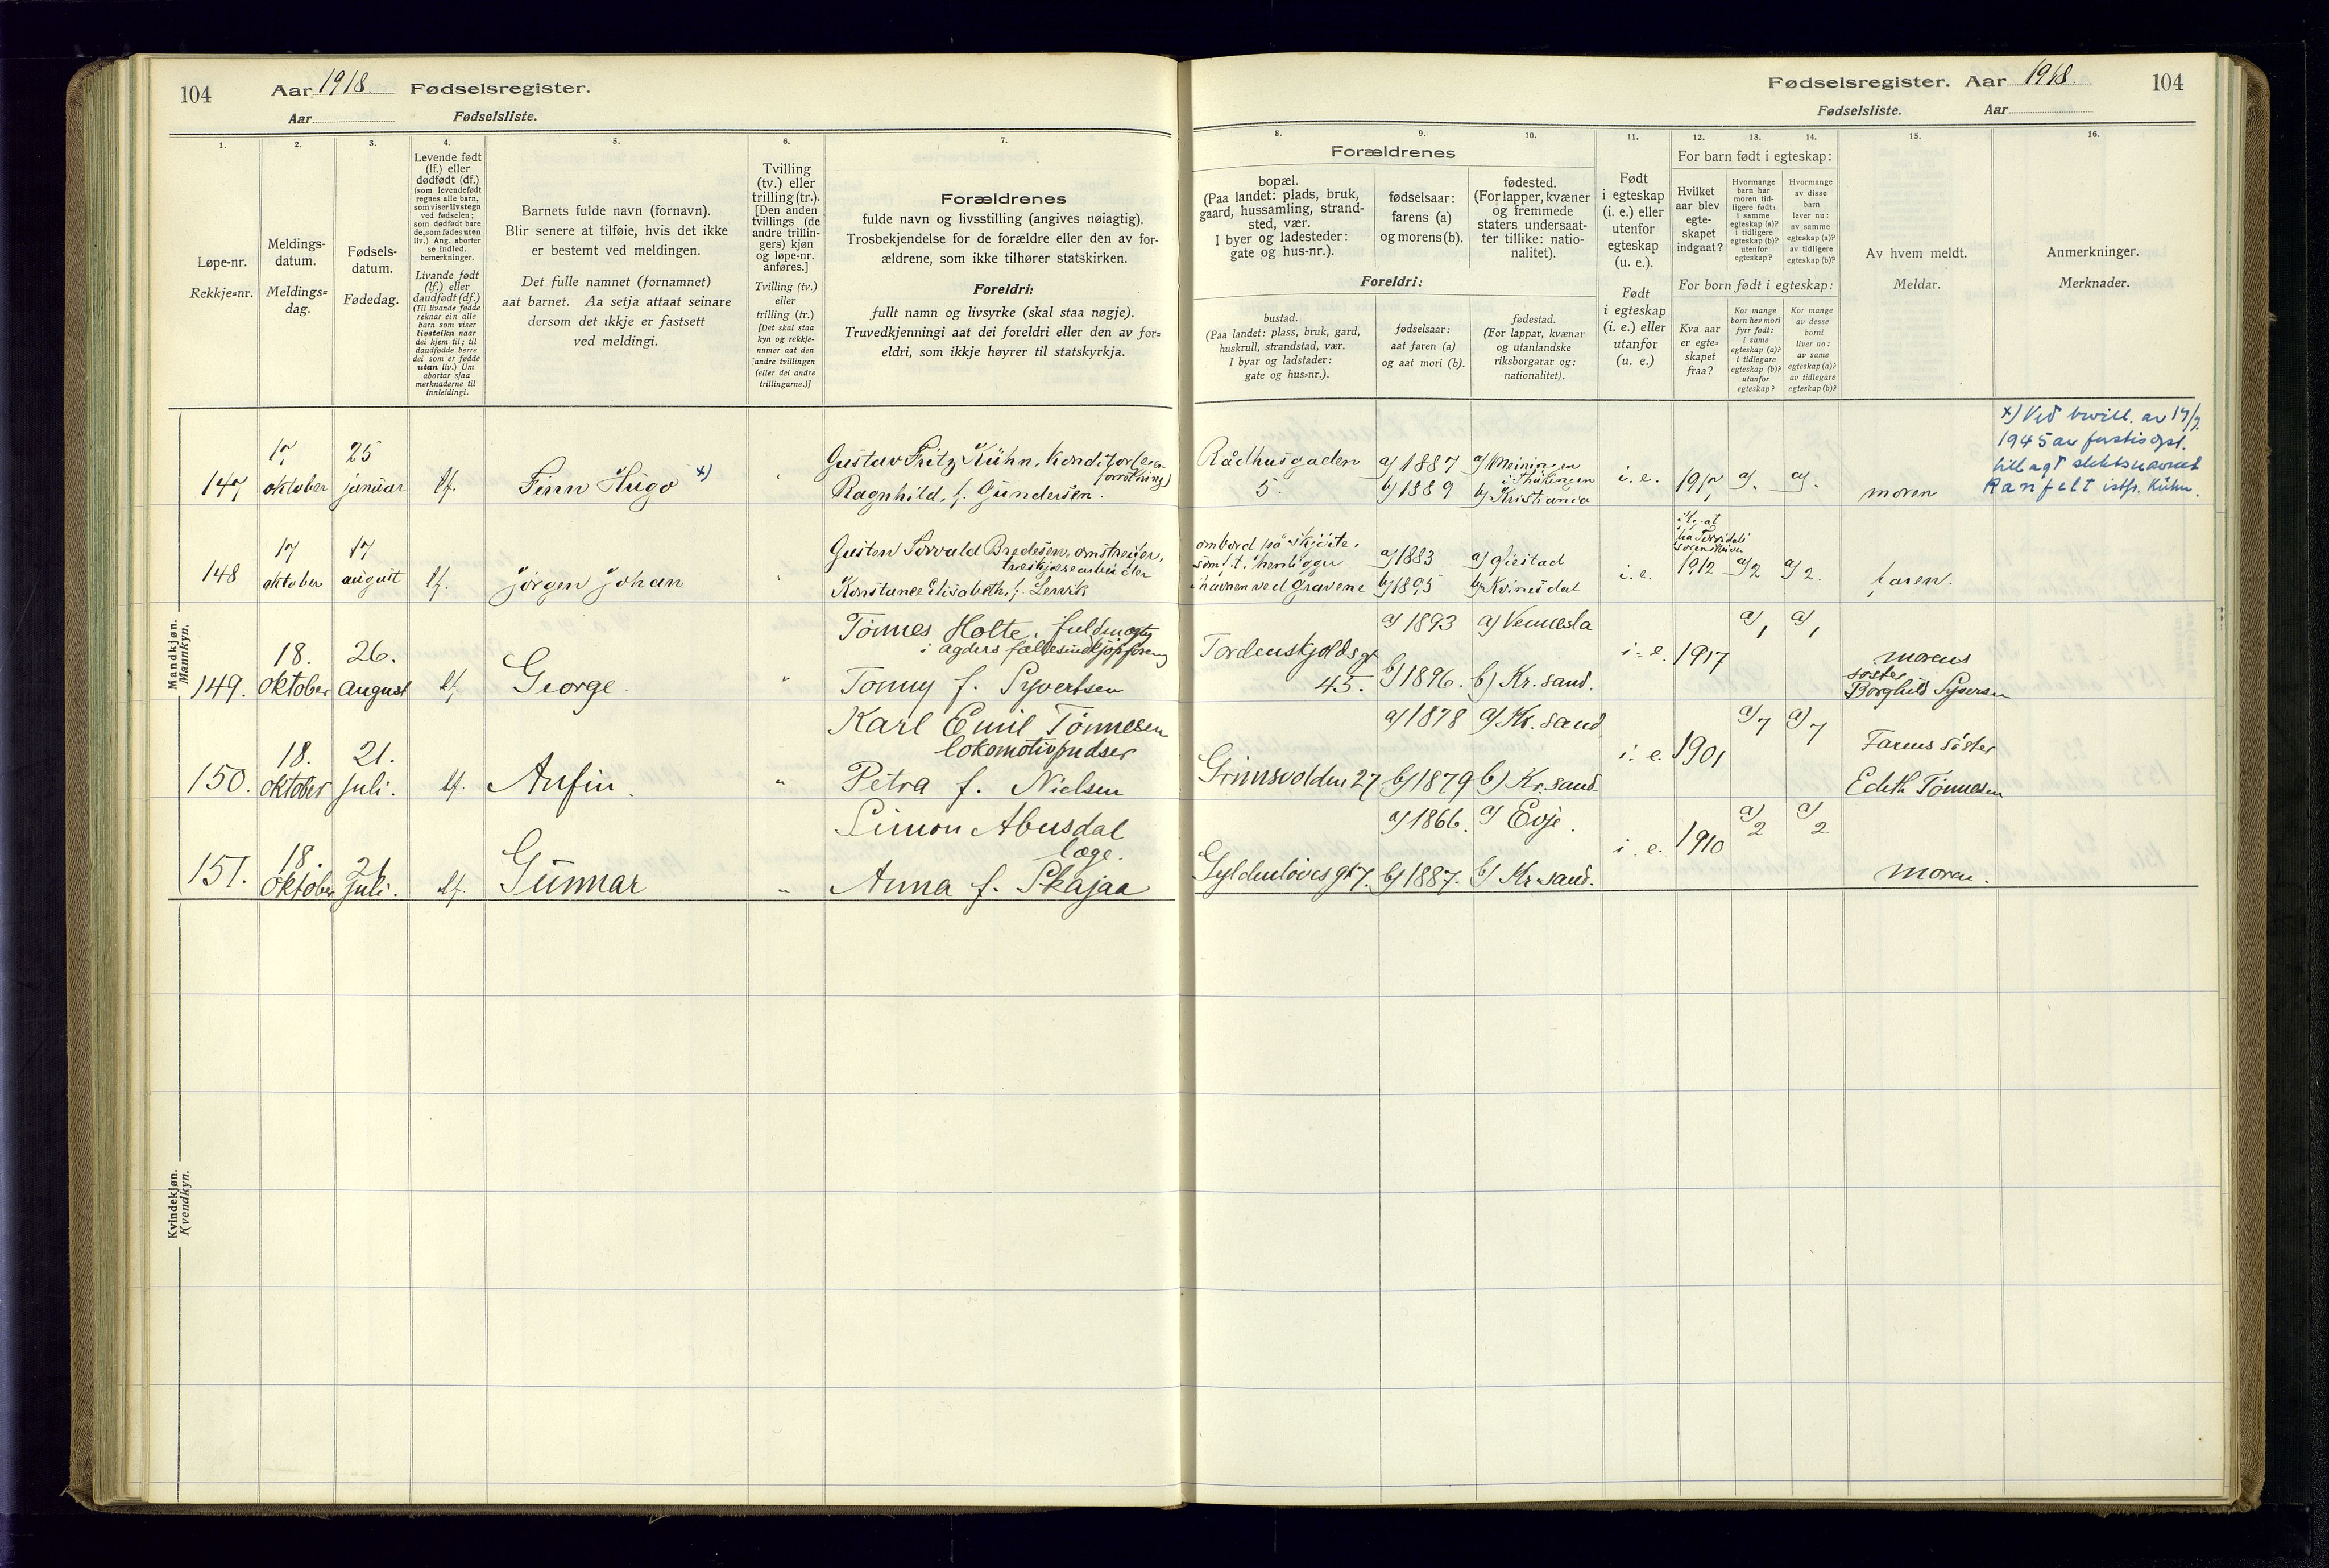 104
Aar 1918. Fødselsregister.
Aar Fødselsliste.
Fødselsregister. Aar 1918.
104
Fødselsliste. Aar
1.
2.
3.
4.
5.
6.
7.
8.
9.
10.
11.
12.
13.
14.
15.
16.
Løpe-nr.
Rekkje=nr.
Meldings-
datum.
Meldings=
dag.
Fødsels-
datum.
Fødedag.
Levende født
(lf.) eller
dødfødt (df.)
(som levendefødt
regnes alle barn,
som viser livstegn
ved fødselen;
som dødfødt bare
de, som fødes uten
liv.) Ang. aborter
se indled.
bemerkninger.
Livande født
(lf.) eller
daudfødt (df.)
(Til livande fødde
reknar ein alle
barn som viser
livsteikn naar
dei kjem til; til
daudfødde berre
dei som er fødde
utan liv.) Um
abortar sjaa
merknaderne til
innleidingi.
Barnets fulde navn (fornavn).
Blir senere at tilføie, hvis det ikke
er bestemt ved meldingen.
Det fulle namnet (fornamnet)
aat barnet. Aa setja attaat seinare
dersom det ikkje er fastsett
ved meldingi.
Tvilling
(tv.) eller
trilling (tr.).
[Den anden
tvillings (de
andre trillin-
gers) kjøn
og løpe-nr.
anføres.]
Tvilling (tv.)
eller
trilling (tr.)
[Det skal staa
kyn og rekkje-
numer aat den
andre tvillingen
(eller dei andre
trillingarne.)]
Forældrenes
fulde navn og livsstilling (angives nøiagtig).
Trosbekjendelse for de forældre eller den av for-
ældrene, som ikke tilhører statskirken.
Foreldri:
fullt namn og livsyrke (skal staa nøgje).
Truvedkjenningi aat dei foreldri eller den av for=
eldri, som ikkje høyrer til statskyrkja.
Forældrenes
bopæl.
(Paa landet: plads, bruk,
gaard, hussamling, strand-
sted, vær.
I byer og ladesteder:
gate og hus-nr.).
fødselsaar:
farens (a)
og morens (b).
fødested.
(For lapper, kvæner
og fremmede
staters undersaat-
ter tillike: natio-
nalitet).
Foreldri:
bustad.
(Paa landet: plass, bruk, gard,
huskrull, strandstad, vær.
I byar og ladstader:
gate og hus=nr.).
fødselsaar:
aat faren (a)
og aat mori (b).
fødestad.
(For lappar, kvænar
og utanlandske
riksborgarar og:
nationalitet).
Født
i egteskap
(i. e.) eller
utenfor
egteskap
(u. e.).
Født
i egteskap
(i. e.) eller
utanfor
(u. e.)
For barn født i egteskap:
Hvilket
aar blev
egte-
skapet
indgaat?
Hvormange
barn har
moren tid-
ligere født:
i samme
egteskap (a)?
i tidligere
egteskap (b)?
utenfor
egteskap?
Hvormange
av disse
barn
lever nu:
av samme
egteskap (a)?
av tidligere
egteskap (b)?
For born født i egteskap:
Kva aar
er egte=
skapet
fraa?
Kor mange
born hev mori
fyrr født:
i same
egteskap (a)?
i tidlegare
egteskap (b)?
utanfor
egteskap?
Kor mange
av desse
borni
liver no:
av same
egteskap (a)?
av tidlegare
egteskap (b)?
Av hvem meldt.
Meldar.
Anmerkninger.
Merknader.
Mandkjøn.
Mannkyn.
147 17 oktober 25 januar lf. Finn Hugo x) "
Gustav Fritz Kühn, Konditor (egen forretning)
Ragnhild, f. Gundersen.
Rådhusgaden 5. a) 1887 b) 1889 a) Meiningen i Thüringen b) Kristiania i. e. moren
x) Ved bevill. av 17/7
1945 av justisdpt.
tillagt slektsnavnet
Ranfelt istf. Kühn.
148 17 oktober 17 august lf. Jørgen Johan "
Gusten Torvald Bredesen, omstreifer,
Konstance Elisabeth, f.
ombord på skjöite,
som f. t. henligger
i havnen ved Gravene
a) 1883 b) 1895 b) Kvinesdal i. e. 1912 a) 2 a) 2. faren.
149. 18. oktober 26. august lf. George "
Tønnes Holte, fuldmægtig
i agders fællesindkjøpsforening
Tonny f. Syvertsen
Tordenskjoldsgt 45. a) 1893 b) 1896. a) Vennesla b) Kr. sand. i. e. 1917 a) 1 a) 1
morens
søster
Borghild Syversen
150. 18. oktober 21. juli. lf. Anfin. "
Karl Emil Tønnesen
lokomotivpudser
Petra f. Nielsen
Grimsvolden 27 a) 1878 b) 1879 a) Kr. sand. b) Kr. sand. i. e. 1901 a) 7 a) 7
Farens søster
Edith Tønnesen
151. 18. oktober 21 juli. lf. Gunnar "
Simon Abusdal
læge.
Anna f. Skajaa
Gyldenløves gt 7. a) 1866. b) 1887. a) Evje. b) Kr. sand. i. e. 1910 a) 2 a) 2 moren.
Kvindekjøn.
Kvendkyn.